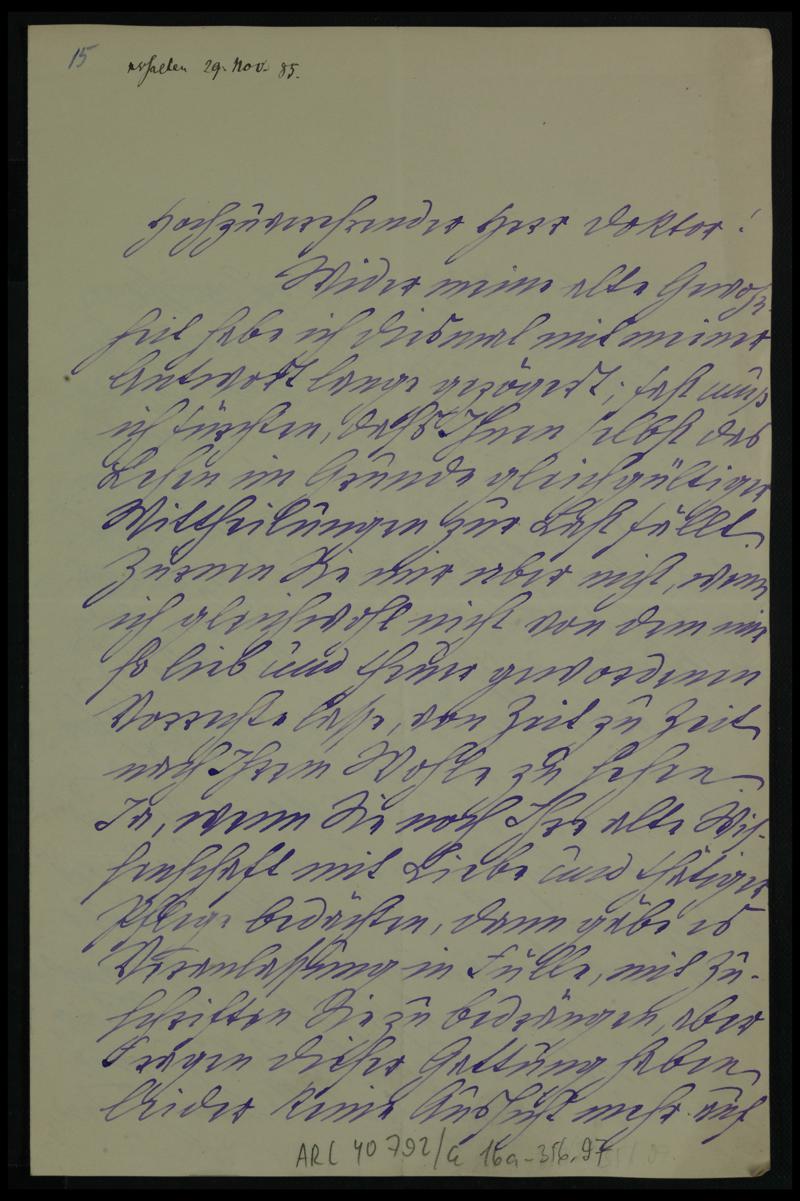 15
erhalten 29. Nov. 85.
Hochzuverehrender Herr Doktor!
Wider meine alte Gewohn-
heit habe ich diesmal mit meiner
Antwort lange gezögert; fast muß
ich fürchten, daß Ihnen selbst das
Lesen im Grunde gleichgültiger
Mittheilungen zur Last fällt.
Zürnen Sie mir aber nicht, wenn
ich gleichwohl nicht von dem mir
so lieb und theuer gewordenen
Vorrechte lasse, von Zeit zu Zeit
nach Ihrem Wohle zu sehen
Ja, wenn Sie noch Ihre alte Wis-
senschaft mit Liebe und thätiger
Pflege bedächten, dann gäbe es
Veranlassung in Fülle, mit Zu-
schriften Sie zu bedrängen, aber
Fragen dieser Gattung haben
leider keine Aussicht mehr auf
ARC 40792/a 16a-356.97